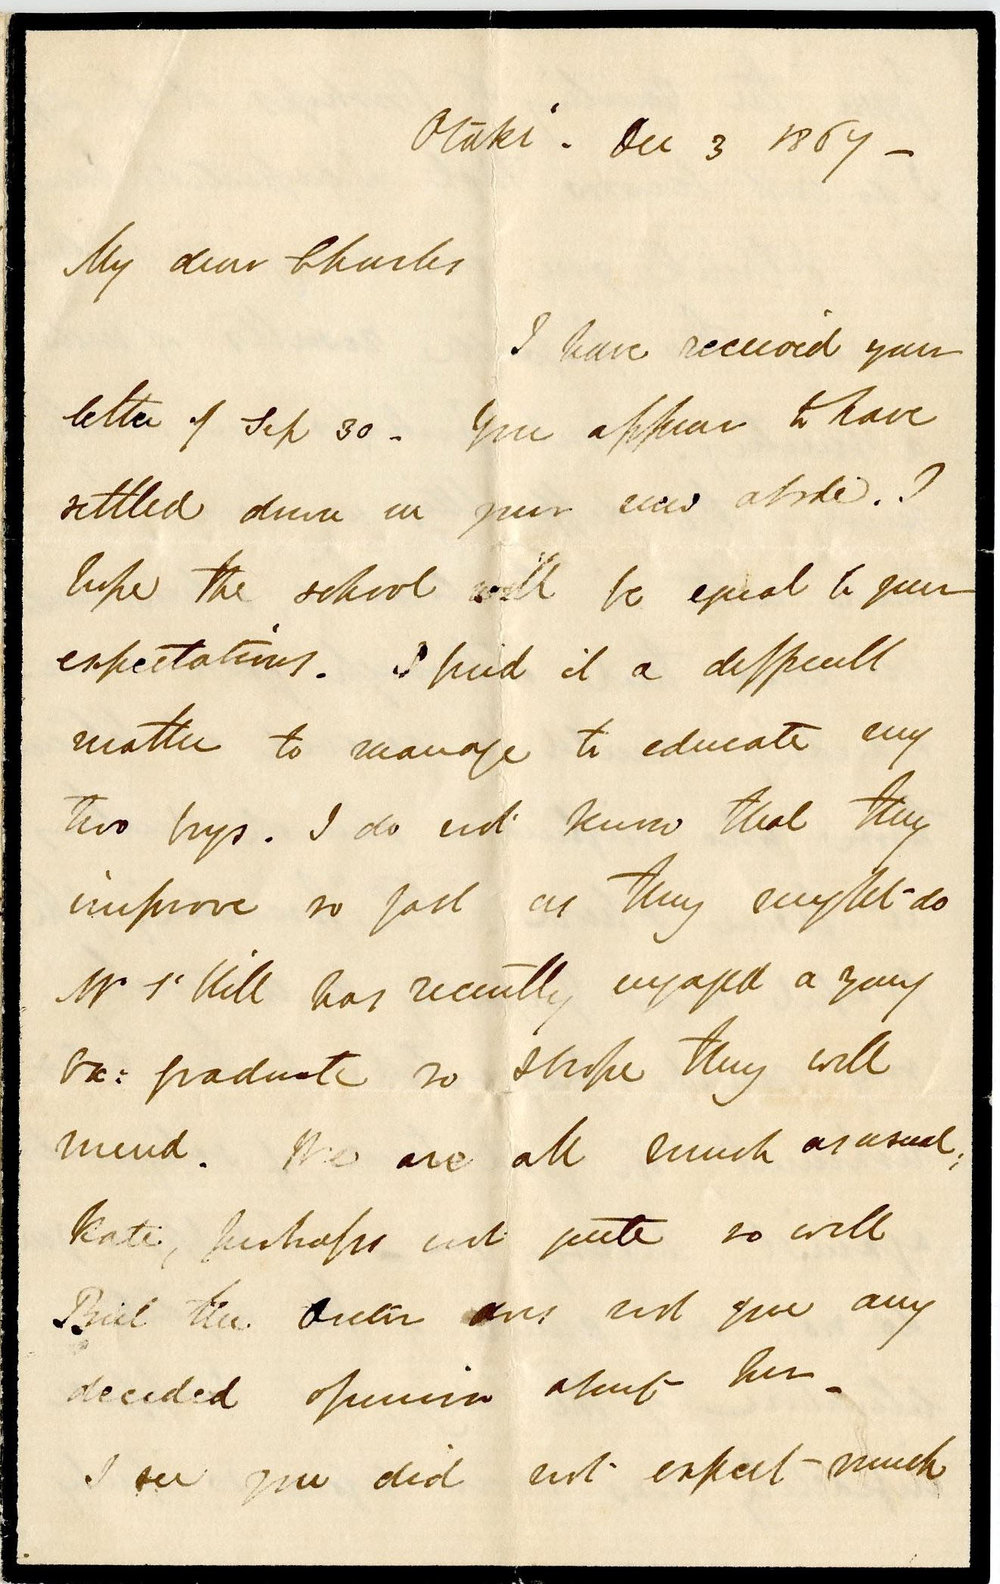 Otaki. Dec 3 1867 -
My dear Charles
I have received your
letter of Sep 30 - You appear to have
settled down in your new abode. I
hope the school will be equal to your
expectations. I find it a difficult
matter to manage to educate my
two boys. I do not know that they
improve so fast as they might do
Mr St Hill has recently engaged a young
Ox: graduate so I hope they will
mend. We are all much as usual;
Kate, perhaps not quite so well
But the Doctor does not give any
decided opinion about her -
I see you did not expect much